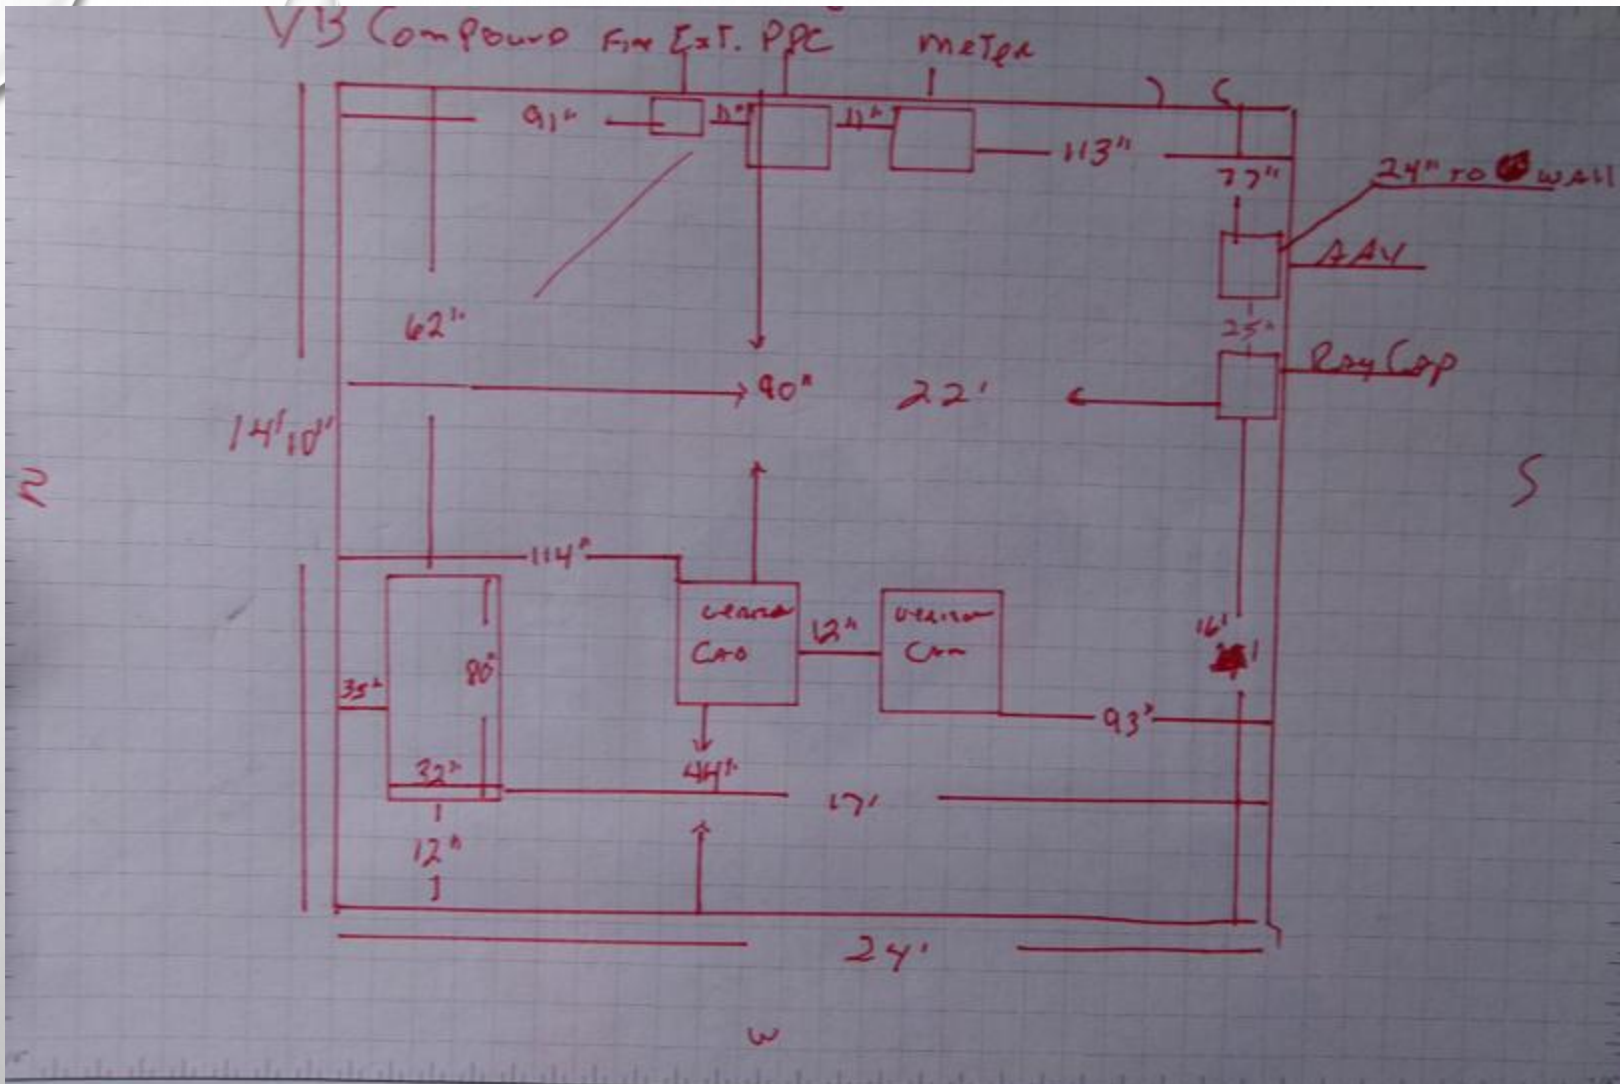 VB Compound Fire Ext. PPC meter
91" 11" 11" 113"
77" 24" to wall
AAV
62" 25"
RayCap
90" 22'
14'10"
N S
114"
Verizon Cab 12" Verizon Cab
16'
80"
35" 93"
32" 44" 17'
12"
24'
W